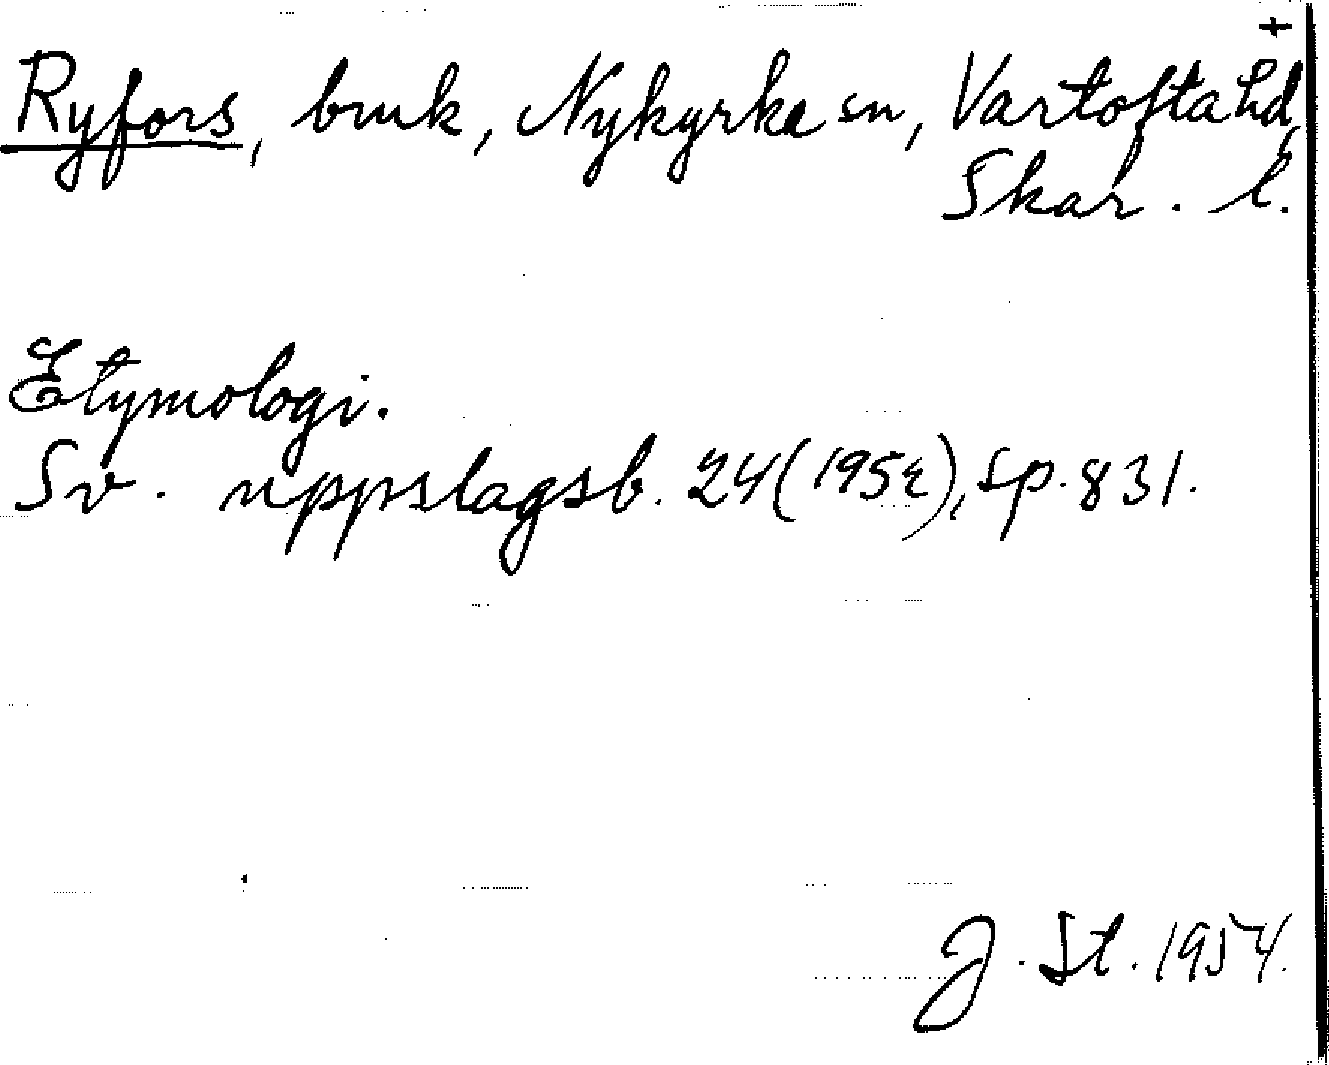 +
Ryfors, bruk, Nykyrka sn, Vartofta hd,
Skar. l.
Etymologi.
Sv. uppslagsb. 24 (1952), sp. 831.
J. St. 1954.